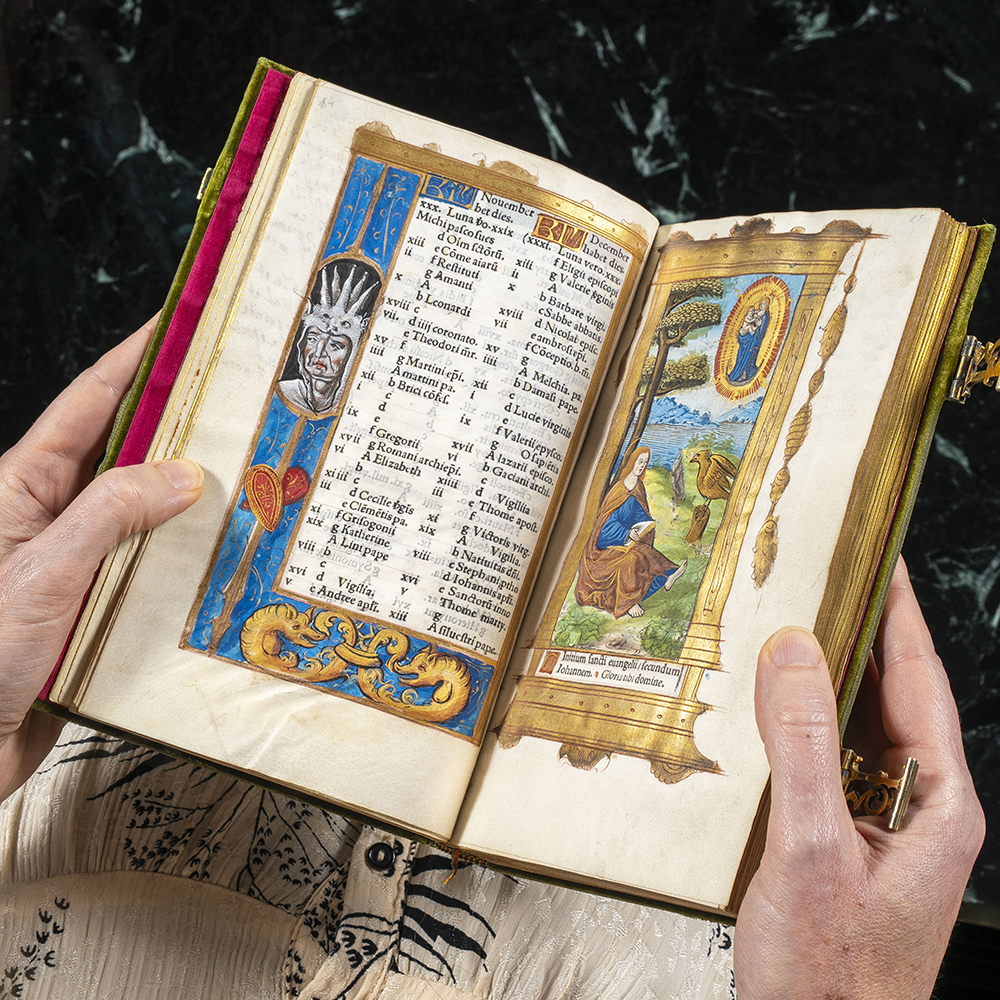 14
KL Nouember
habet dies.
xxx. Luna vo. xxix
Michi pasco sues
d Oīm sctōrū.
xiii e Come aiarū
ii f Restituti
g Amanti
x A
b Leonardi
xviii c
vii. d iiij coronato.
e Theodori m̄r.
xv f
iiii g Martini ep̄i.
A martini pa.
xii b Brici cōfes.
i c
d
ix e
f Gregorii
xvii g Romani archiep̄i.
vi A Elizabeth
b
xiiii c
iii d Cecilie v̄gis
e Clemētis pa.
xi f Grisogonii
xix g Katherine
A Lini pape
viii b
c
xvi d Vigilia.
v e Andree apſt.
KL December
habet dies.
xxxi. Luna vero. xxx.
f Eligii episcopi
xiii g Valerie v̄ginis
ii A
x b Barbare virgi.
c Sabbe abbatis.
xviii d Nicolai epiſc.
vii e ambrosi epſ.
f Cōceptio. b. m̄.
xv g
iiii A Melchia. pa.
b Damasi pape.
xii c
i d Lucie virginis
e
ix f Valerii epyſco.
xvii g O sapiētia
vi A lazarii epiſco.
b Gaciani archi.
xiiii c
iii d Vigilia
e Thome apoſt.
xi f
xix g Victoris virg.
A Vigilia.
viii b Natiuitas dn̄i.
c Stephani ptho
xvi d Iohannis apſt.
v e Sanctorū inno
f Thome marty.
xiii g
A siluestri pape.
15
Initium sancti euangelii / secundum
Iohannem. Gloria tibi domine.